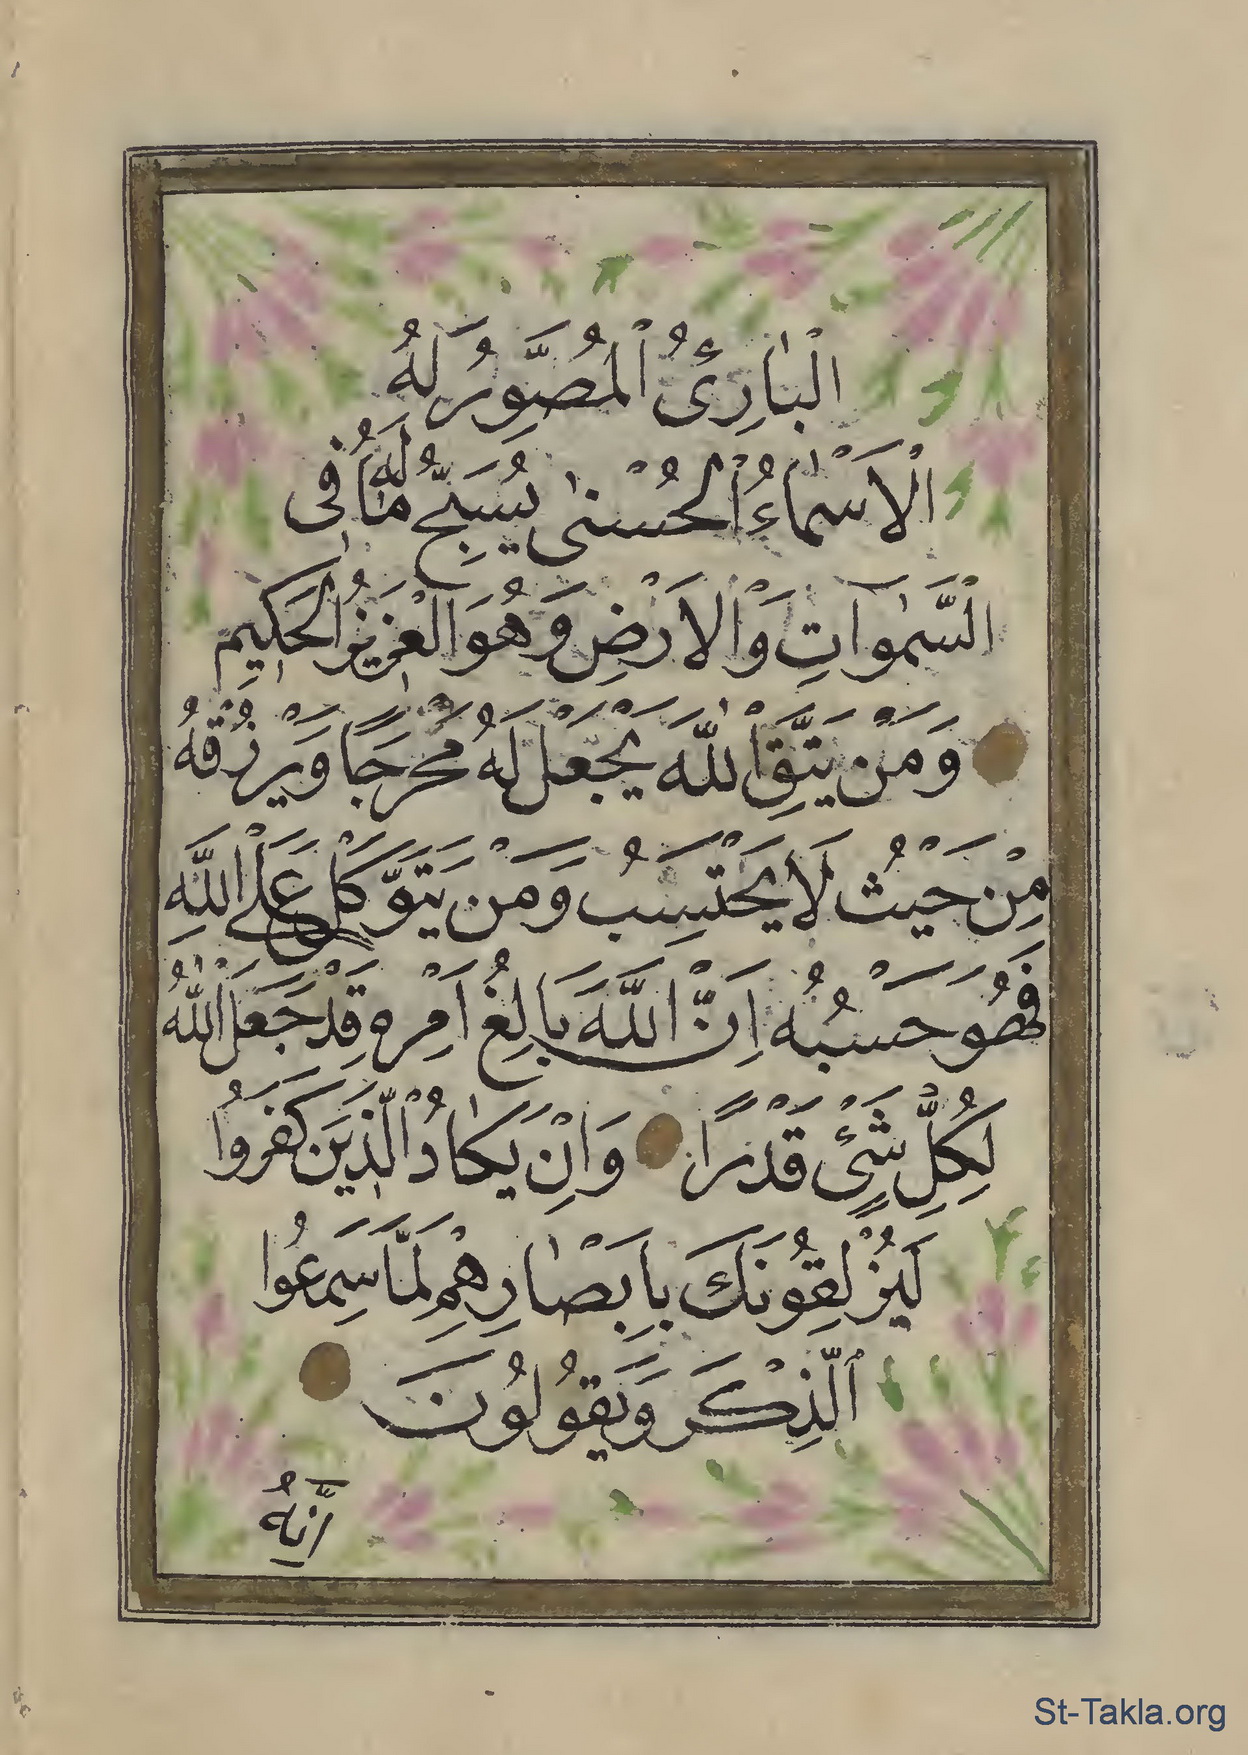 الْبَارِئُ الْمُصَوِّرُ لَهُ
الْاَسْمَاءُ الْحُسْنٰى يُسَبِّحُ لَهُ مَا فِى
السَّمٰوَاتِ وَالْاَرْضِ وَهُوَ الْعَزِيزُ الْحَكِيمُ
وَمَنْ يَتَّقِ اللّٰهَ يَجْعَلْ لَهُ مَخْرَجًا وَيَرْزُقْهُ
مِنْ حَيْثُ لَا يَحْتَسِبُ وَمَنْ يَتَوَكَّلْ عَلَى اللّٰهِ
فَهُوَ حَسْبُهُ اِنَّ اللّٰهَ بَالِغُ اَمْرِهِ قَدْ جَعَلَ اللّٰهُ
لِكُلِّ شَىْءٍ قَدْرًا وَاِنْ يَكَادُ الَّذِينَ كَفَرُوا
لَيُزْلِقُونَكَ بِاَبْصَارِهِمْ لَمَّا سَمِعُوا
الذِّكْرَ وَيَقُولُونَ
اِنَّهُ
St-Takla.org